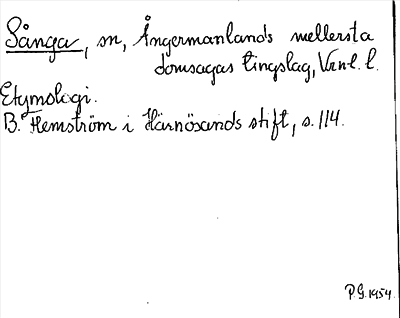 Sånga, sn, Ångermanlands mellersta
domsagas tingslag, Vrnl. l.
Etymologi.
B. Hemström i Härnösands stift, s. 114.
P.G. 1954.